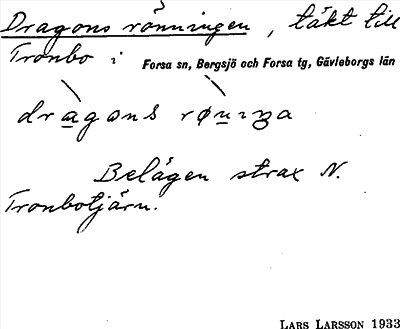 Dragons rönningen, täkt till
Tronbo i Forsa sn, Bergsjö och Forsa tg, Gävleborgs län
Belägen strax N.
Tronbotjärn.
LARS LARSSON 1933